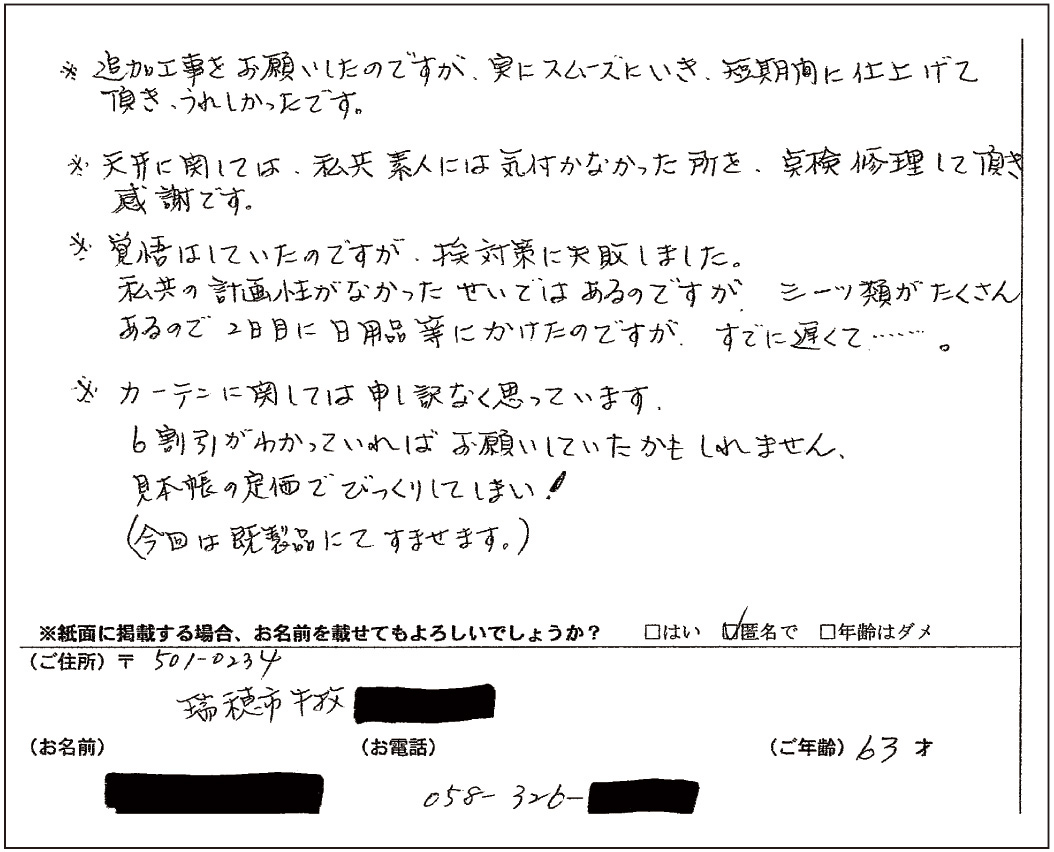 ※ 追加工事をお願いしたのですが、実にスムーズにいき、短期間に仕上げて
頂き、うれしかったです。
※ 天井に関しては、私共素人には気付かなかった所を、点検修理して頂き
感謝です。
※ 覚悟はしていたのですが、挨対策に失敗しました。
私共の計画性がなかったせいではあるのですが シーツ類がたくさん
あるので 2日目に日用品等にかけたのですが、すでに遅くて……。
※ カーテンに関しては申し訳なく思っています。
6割引がわかっていればお願いしていたかもしれません、
見本帳の定価でびっくりしてしまい!
(今回は既製品にてすませます。)
※紙面に掲載する場合、お名前を載せてもよろしいでしょうか? □はい ☑匿名で □年齢はダメ
(ご住所) 〒 501-0234
瑞穂市牛牧
(お名前) (お電話) (ご年齢) 63 才
058-326-